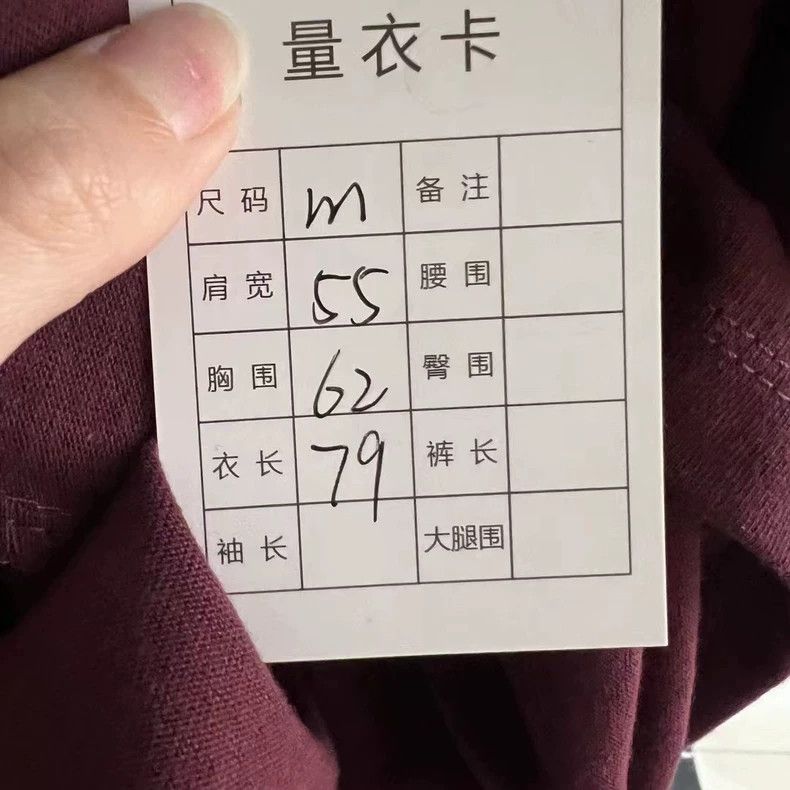 量衣卡
尺码 m 备注
肩宽 55 腰围
胸围 62 臀围
衣长 79 裤长
袖长 大腿围